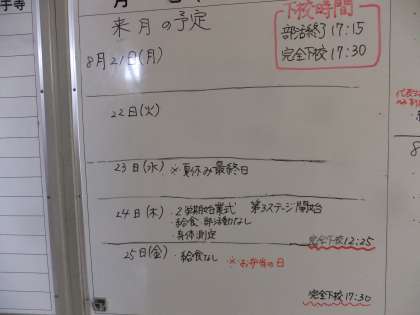 来月の予定
下校時間
部活終了 17:15
完全下校 17:30
8月21日(月)
22日(火)
23日(水) ※夏休み最終日
24日(木) ・2学期始業式 第3ステージ開始
・給食・部活動なし
・身体測定
完全下校 12:25
25日(金) ・給食なし ※お弁当の日
完全下校 17:30